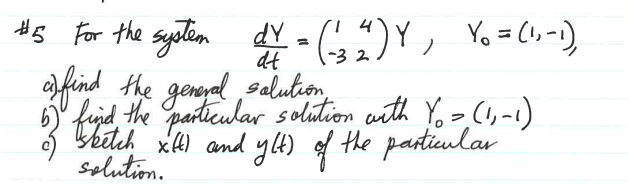 #5 For the system dY/dt = (1 4 -3 2) Y, Y₀ = (1,-1),
a) find the general solution
b) find the particular solution with Y₀ = (1,-1)
c) sketch x(t) and y(t) of the particular
solution.